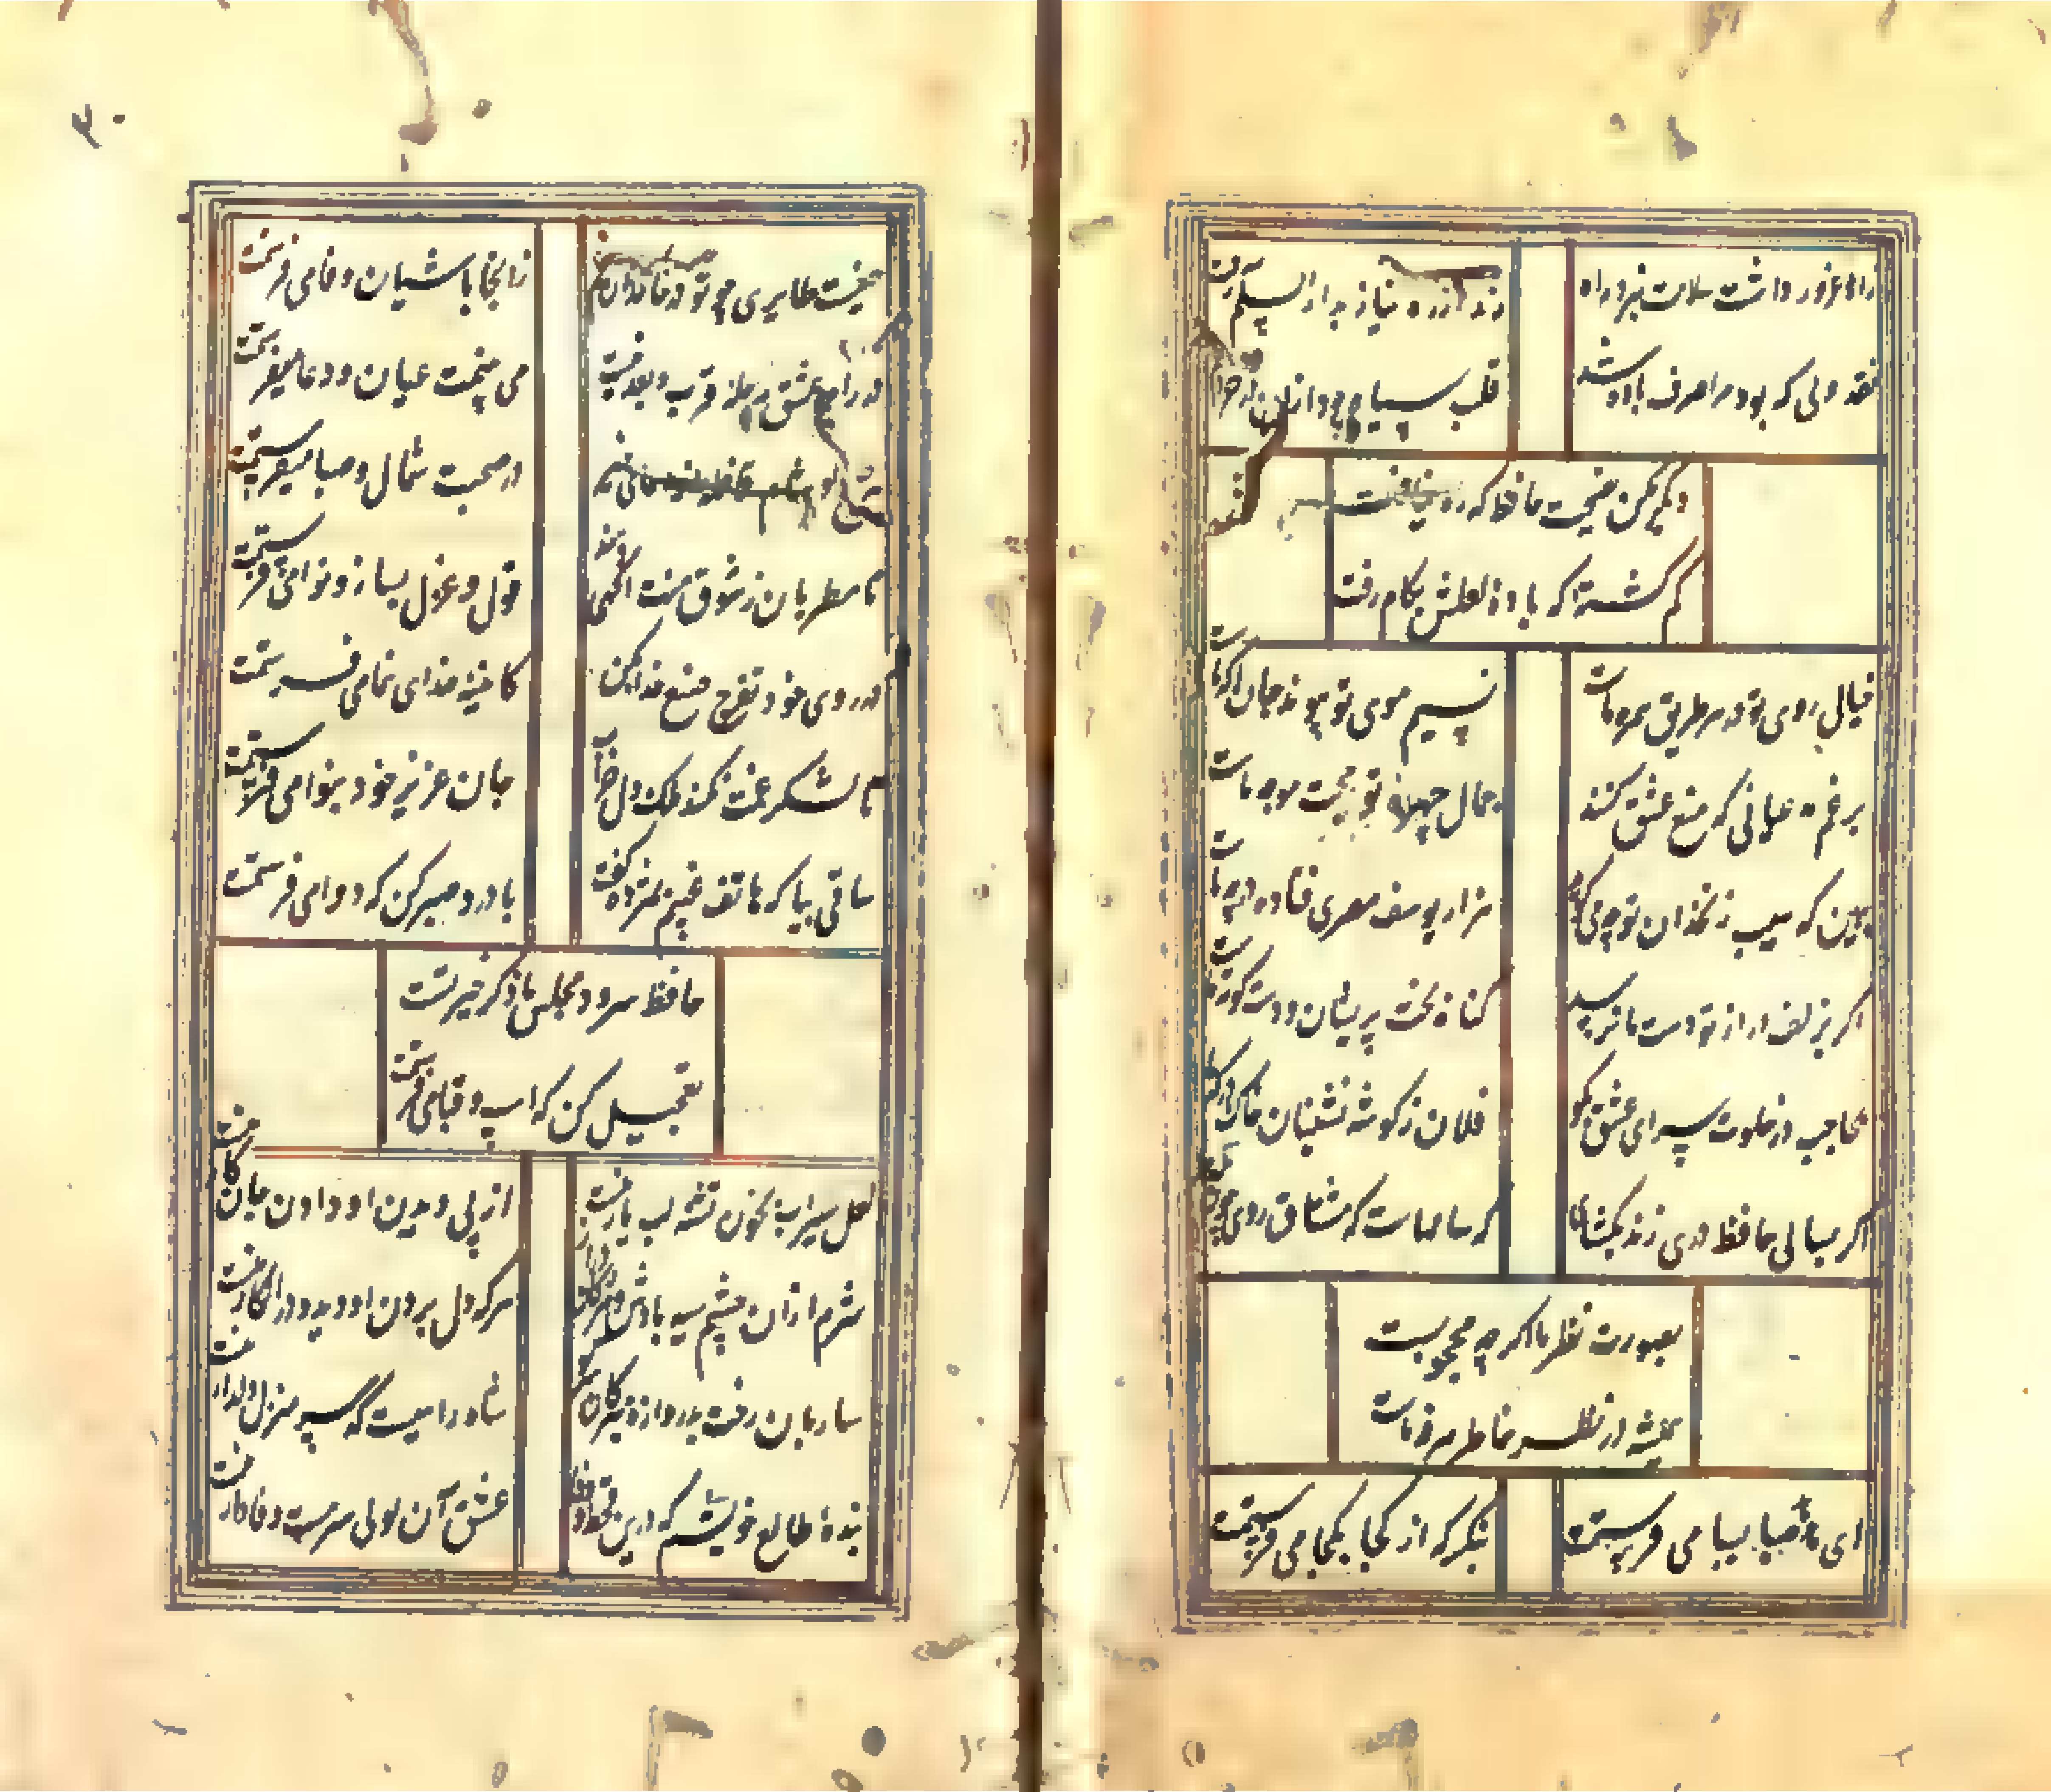 زاهد غرور داشت سلامت نبرد راه
رند از ره نیاز بدار السلام رفت
نقد دلی که بود مرا صرف باده شد
قلب سیاه بود ازان در حرام
دیگر مکن نصیحت حافظ که ره نیافت
گم گشته که باده لعلش بکام رفت
خیال روی تو در هر طریق همره ماست
نسیم موی تو پیوند جان آگه ماست
برغم مدعیانی که منع عشق کنند
جمال چهره تو حجت موجه ماست
ببین که سیب زنخدان تو چه می گوید
هزار یوسف مصری فتاده در چه ماست
اگر بزلف دراز تو دست ما نرسد
گناه بخت پریشان و دست کوته ماست
بحاجب در خلوت سرای عشق بگو
فلان ز گوشه نشینان خاک درگه ماست
اگر بسالی حافظ دری زند بگشای
که سالهاست که مشتاق روی چون مه ماست
بصورت نظر ما اگر چه محجوبست
همیشه در نظر خاطر مرفه ماست
ای هدهد صبا بسبا می فرستمت
بنگر که از کجا بکجا می فرستمت
۳۰
حیفست طایری چو تو در خاکدان غم
زانجا باشیان وفا می فرستمت
در راه عشق مرحله قرب و بعد نیست
می بینمت عیان و دعا میفرستمت
در صحبت شمال و صبا میفرستمت
تا مطربان ز شوق منت آگهی دهند
قول و غزل بساز و نوا می فرستمت
در روی خود تفرج صنع خدای کن
کایینه خدای نمای می فرستمت
تا لشکر غمت نکند ملک دل خراب
جان عزیز خود بنوا می فرستمت
ساقی بیا که هاتف غیبم بمژده گفت
با درد صبر کن که دوا می فرستمت
حافظ سرود مجلس ما ذکر خیر تست
تعجیل کن که اسب و قبا می فرستمت
لعل سیراب بخون تشنه لب یار منست
از پی دیدن او دادن جان کار منست
شرم ازان چشم سیه بادش و مژگان دراز
هر که دل بردن او دید و در انکار منست
ساربان رخت بدروازه مبر کان سر کو
شاه راهیست که سر منزل دلدار منست
بنده طالع خویشم که درین قحط وفا
عشق آن لولی سرمست وفادار منست